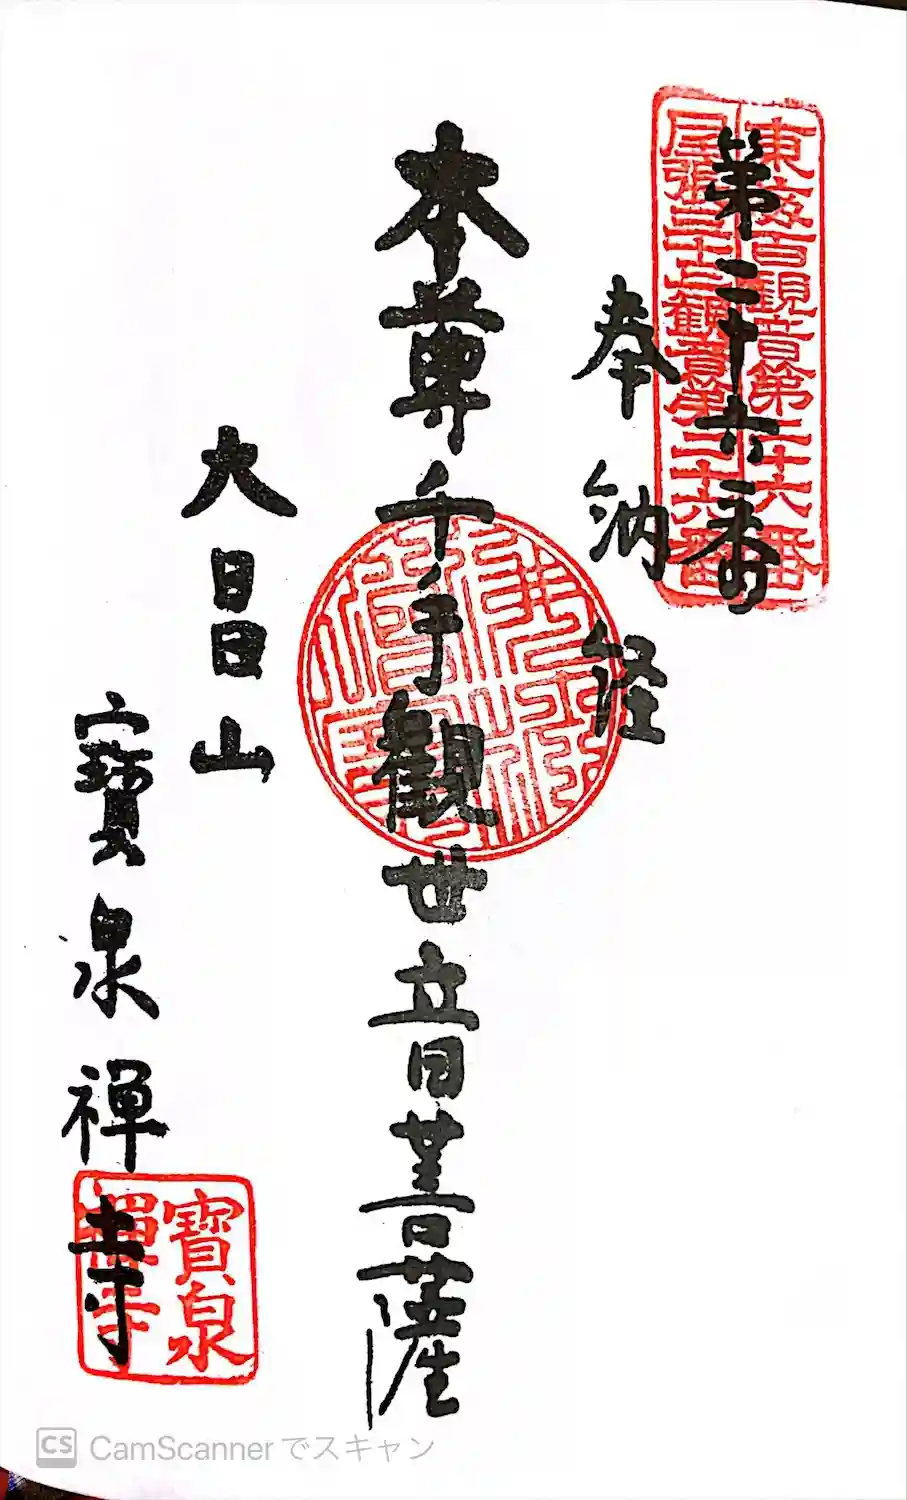 東海百観音第二十六番
尾張三十三観音第二十六番
第二十六番
奉納経
本尊千手観世音菩薩
大昌山
寶泉禅寺
寶泉
禅寺
CS CamScannerでスキャン